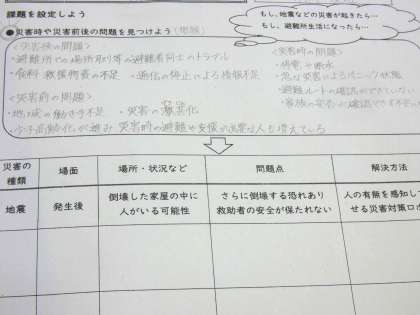 課題を設定しよう
●災害時や災害前後の問題を見つけよう(想起)
もし、地震などの災害が起きたら…
もし、避難所生活になったら…
<災害後の問題>
・避難所での場所取り等の避難者同士のトラブル
・食料 救援物資の不足 ・流通の停止による物資不足
<災害時の問題>
・停電や断水
・急な災害によるパニック状態
・避難ルートの確認ができていない
・家族の安否の確認ができず不安
<災害前の問題>
・地域の働き手不足 ・災害の激甚化
・少子高齢化が進み 災害時の避難や支援が必要な人も増えている
災害の種類
場面
場所・状況など
問題点
解決方法
地震
発生後
倒壊した家屋の中に
人がいる可能性
さらに倒壊する恐れあり
救助者の安全が保たれない
人の有無を感知して
せる災害対策ロボ